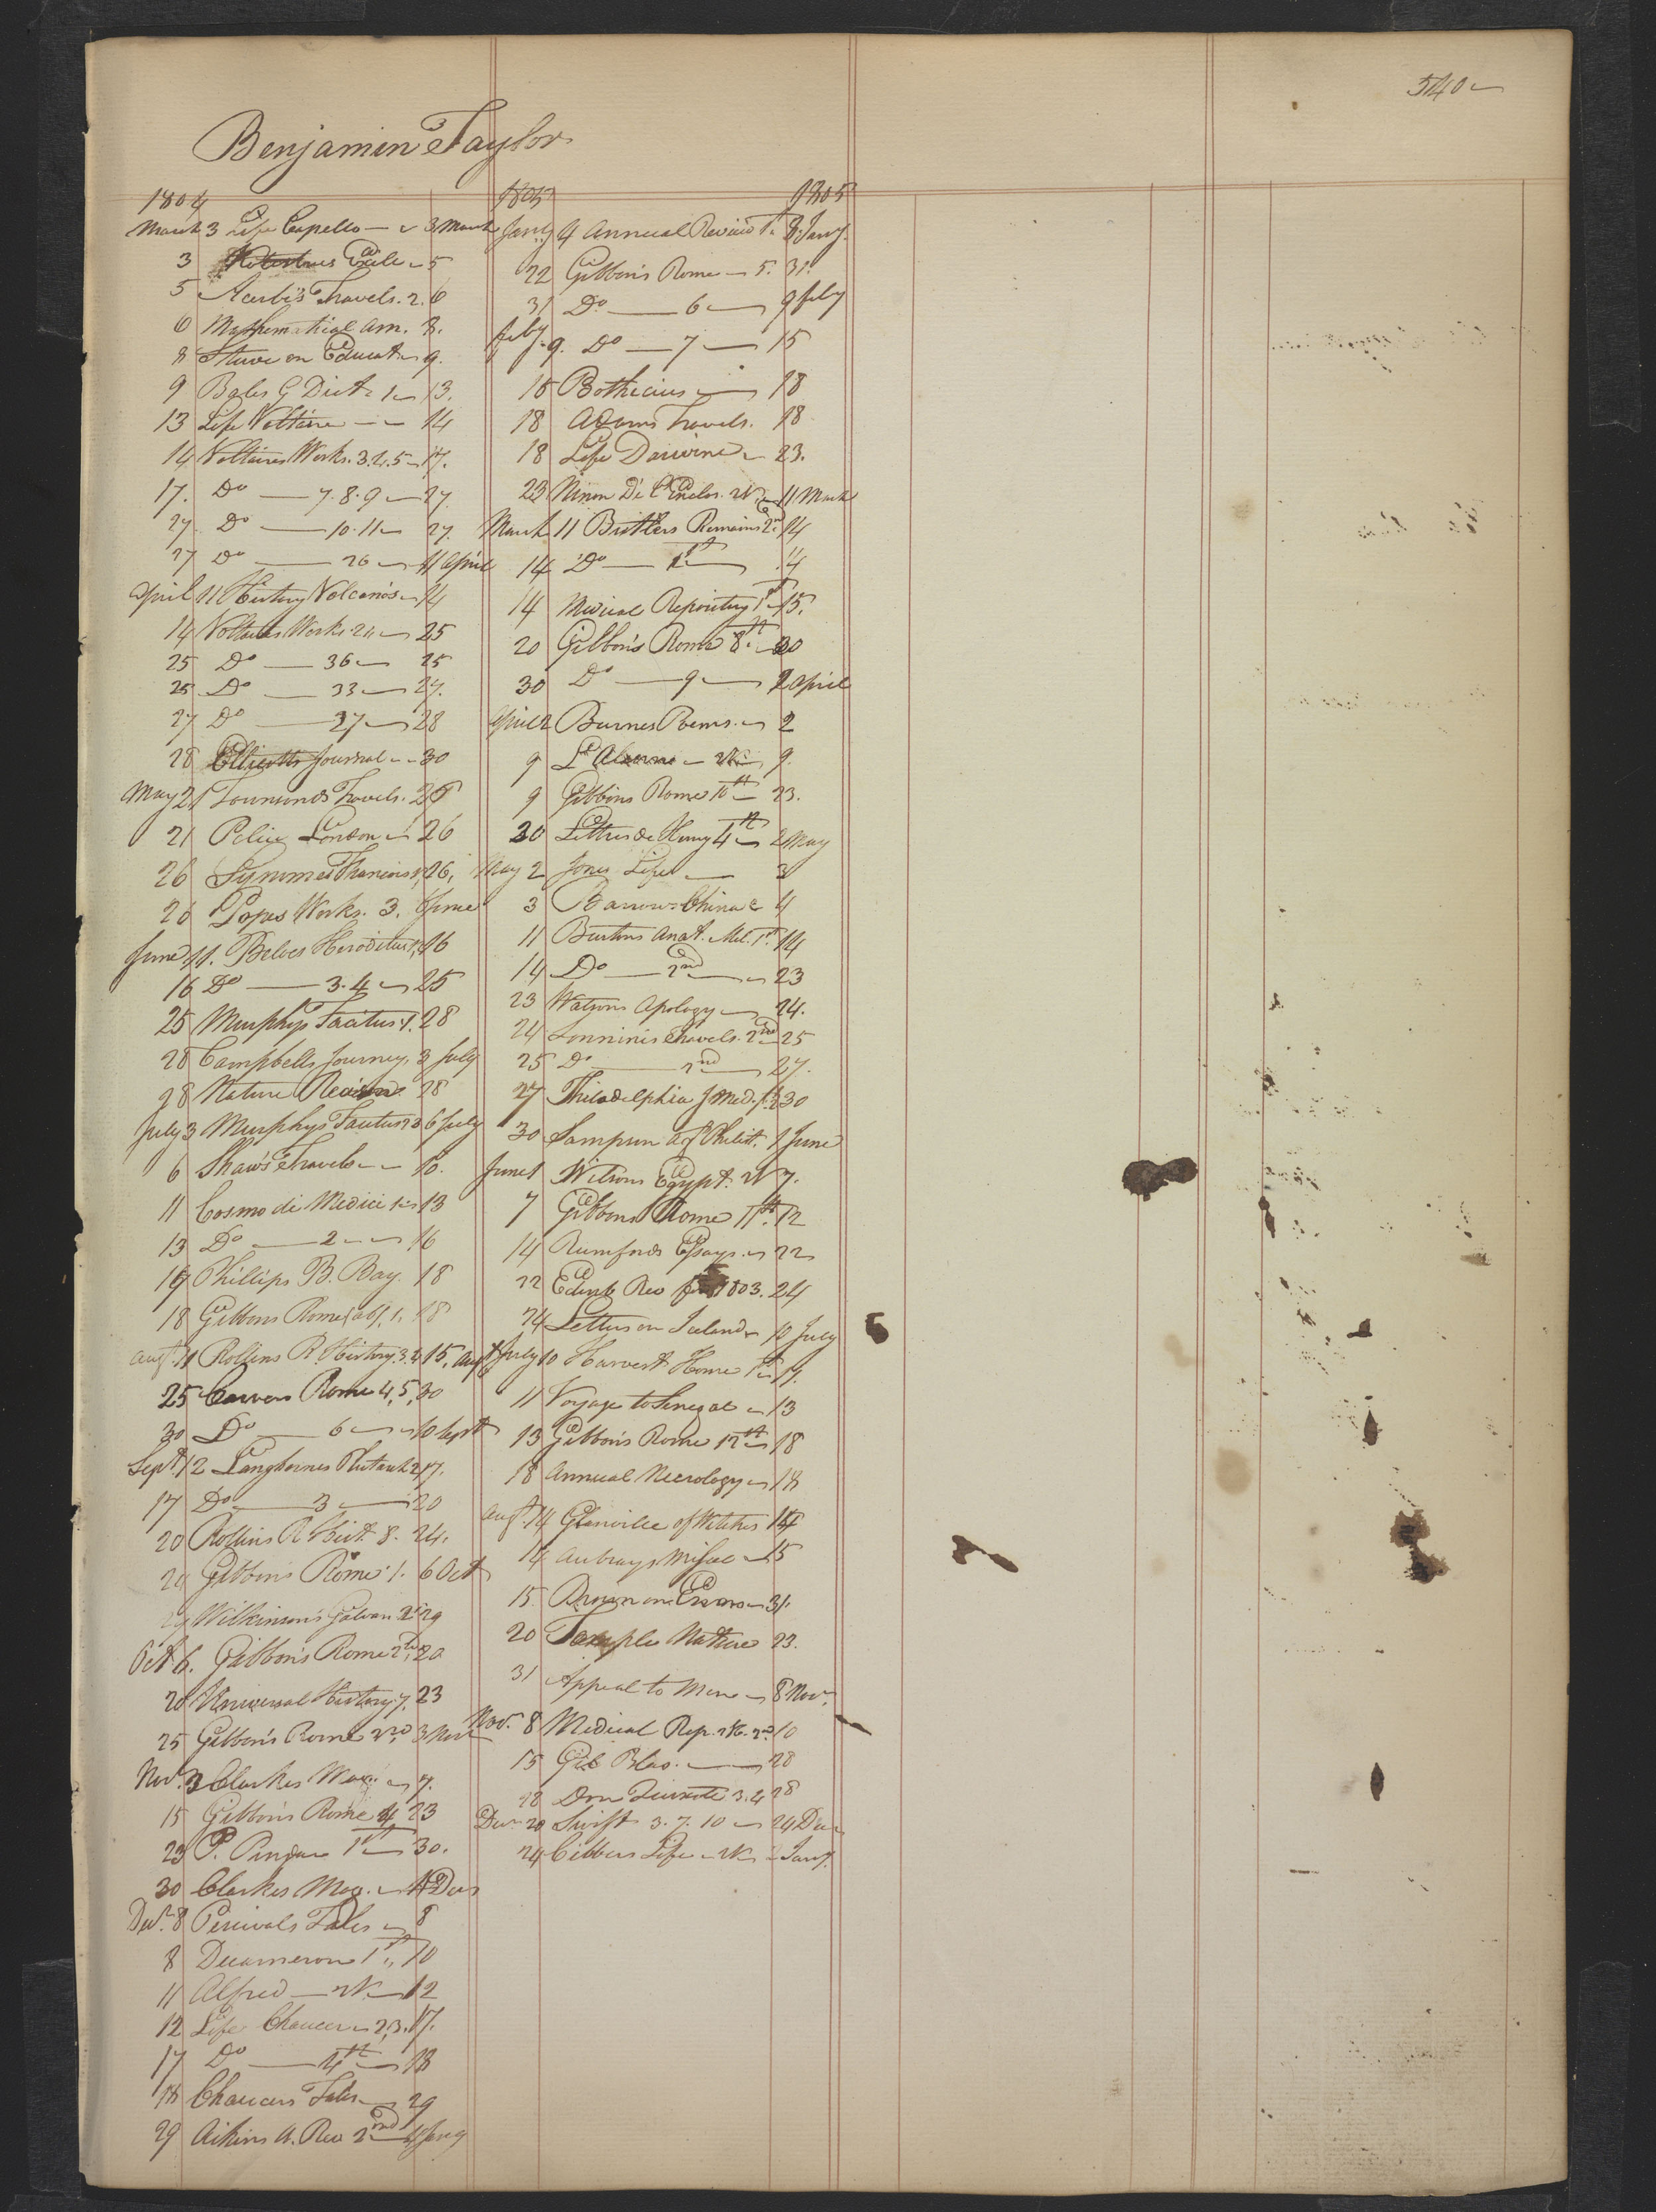 540
Benjamin Taylor
1804
March 3 Life Capello 3 March
3 5
5 Acerbi's Travels. 2. 6
6 Mathematical Am. 8.
8 on Educat 9.
9 G Dict. 1 13.
13 Life Voltaire 14
14 Voltaires Works. 3.4.5 17.
17. Do 7.8.9 27
27 Do 10.11 27.
27 Do 26 11 April
April 11 History Volcano's 14
14 Voltaires Works 25
25 Do 36 25
25 Do 33 27.
27 Do 37 28
28 Ellicotts Journal 30
May 21 Townsends Travels.
21 Police London 26
26 26,
26 Popes Works. 3. June
June 11. Beloes Heroditus 16
16 Do 3.4 25
25 Murphys Tacitus 1. 28
28 Campbells Journey, 3 July
28 Nature 28
July 3 Murphys Tacitus 6 July
6 Shaw's Travels 10.
11 Cosmo di Medici 1 13
13 Do 2 16
16 Phillips B. Bay. 18
18 Gibbons Rome 1. 18
Augt. 11 Rollins R. History. 3.4 15. Augt
25 Rome 4,5, 30
30 Do 6 10 Sept
Sept. 12 Langhornes Plutarch 2 17.
17 Do 3 20
20 Rollins R Hist. 8. 24.
24 Gibbons Rome 1. 6 Oct
29 Wilkinson's Galvan 29
Oct 6. Gibbon's Rome 2d 20
20 Universal History 7. 23
25 Gibbon's Rome 3 Nov
Nov. 3 Clarkes 7.
15 Gibbon's Rome 4 23
23 P. Pindar 1st 30.
30 Clarkes Decr
Decr. 8 Percivals Tales 8
8 Decameron 1st 10
11 Alfred 12
12 Life Chaucer 2,3. 17.
17 Do 4th 18
18 Chaucers Tales 29
29 Aikins A. Rev 2nd 4 Jany
1805 1805
Jany 4 Annual Review 1st 8 Jany.
22 Gibbon's Rome 5. 31.
31 Do 6 9 feby
feby. 9. Do 7 15
15 Bothecius 18
18 Adams Travels. 18
18 Life Darwin 23.
23 Ninon De l'Enclos. 11 March
March 11 Butlers Remains 2d 14
14 Do 1st 14
14 Medical Repository 1st 15.
20 Gibbon's Rome 8th 30
30 Do 9 2 April
April 2 Burnes Poems. 2
9 9.
9 Gibbons Rome 10th 23.
30 Lettres de Henry 4th 2 May
May 2 Jones Life 3
3 Barrows China 4
11 Burtons Anat. Mel. 1st 14
14 Do 2nd 23
23 Watsons Apology 24.
24 Sonninis Travels. 25
25 Do 2nd 27.
27 Philadelphia J Med. 30
30 Sampson agt Philist. 1 June
June 1 Wilsons Egypt. 7.
7 Gibbons Rome 11th. 12
14 Rumfords Essays. 22
22 Edinb Rev for 1803. 24
24 Letters on Iceland 10 July
July 10 Harvest Home 1st 11.
11 Voyage to Senegal 13
13 Gibbon's Rome 12th 18
18 Annual Necrology 18
Augt. 14 Glanville of Witches 14
14 Aubrays Miscel 15
15. Brown on Errors 31.
20 Temple Nature 23.
31 Appeal to Men 8 Nov.
Nov. 8 Medical Rep. 10
15 Gil Blas. 28
28 Don Quixote 3.4 28
Decr 20 Swift 3.7.10 24 Decr
24 Cibbers Life Jany.